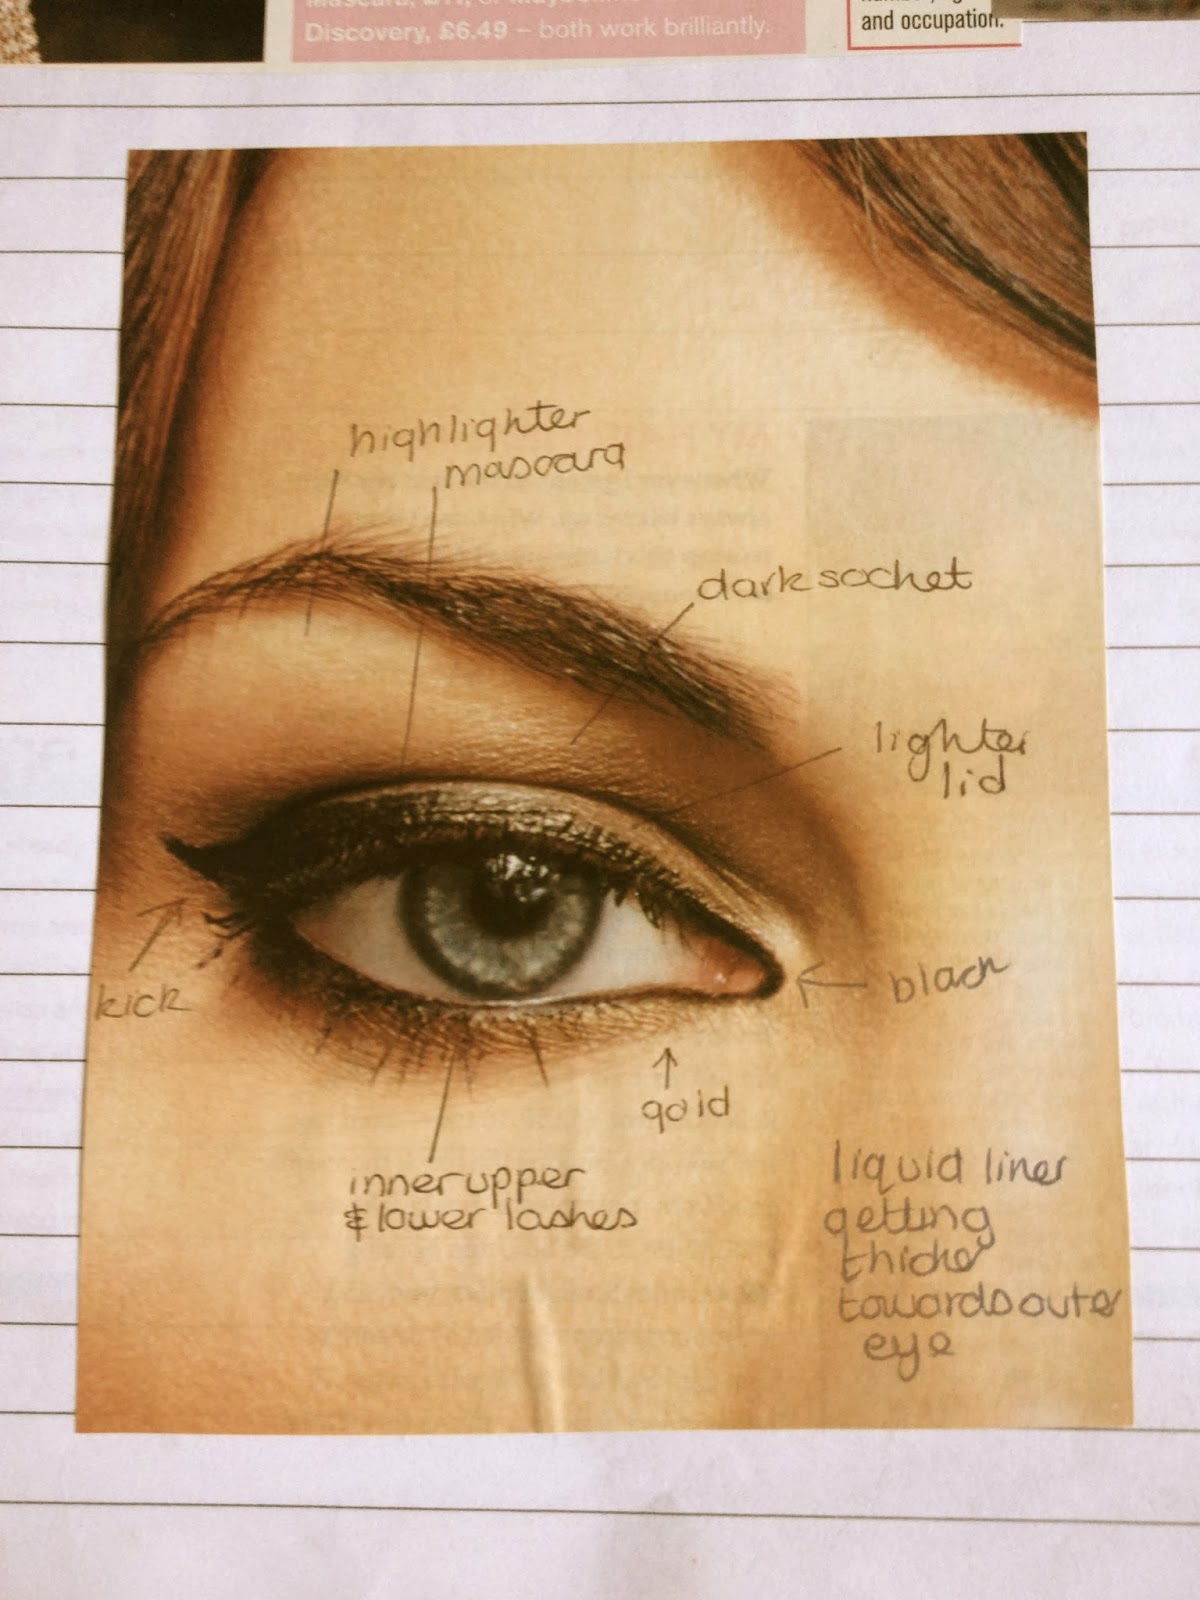 Discovery, £6.49 – both work brilliantly.
and occupation.
highlighter
mascara
dark socket
lighter
lid
kick
black
gold
inner upper
& lower lashes
liquid liner
getting
thicker
towards outer
eye